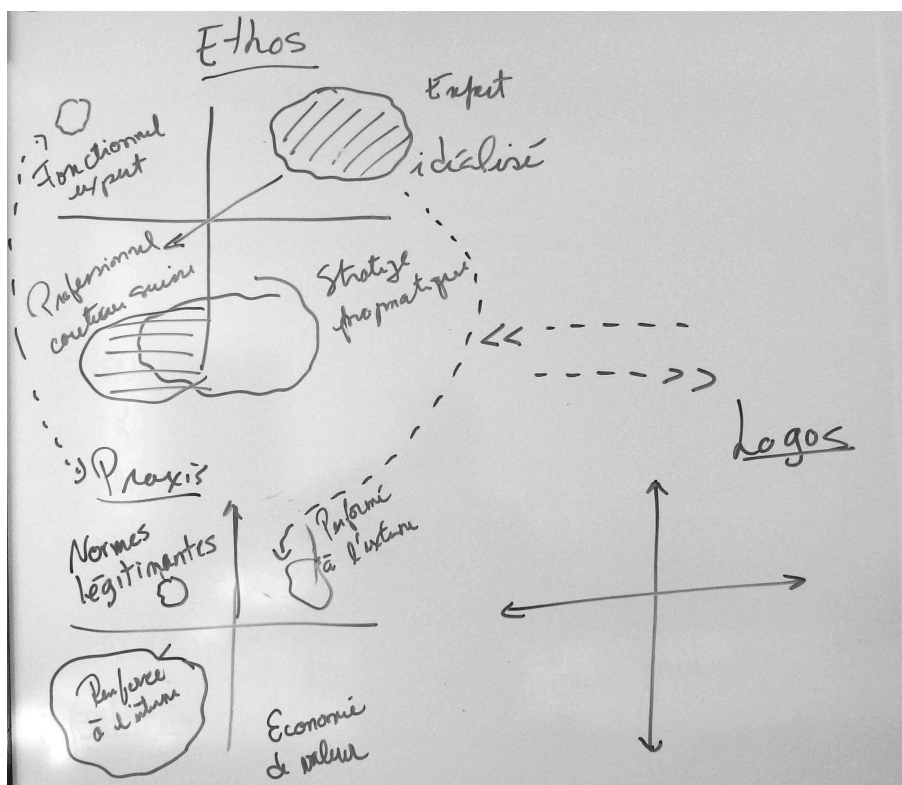 Ethos
Expert
idéalisé
Fonctionnel
expert
Professionnel
Stratège
pragmatique
Logos
Praxis
Normes
légitimantes
Performé
à l'externe
Renforce
à l'interne
Economie
de valeur